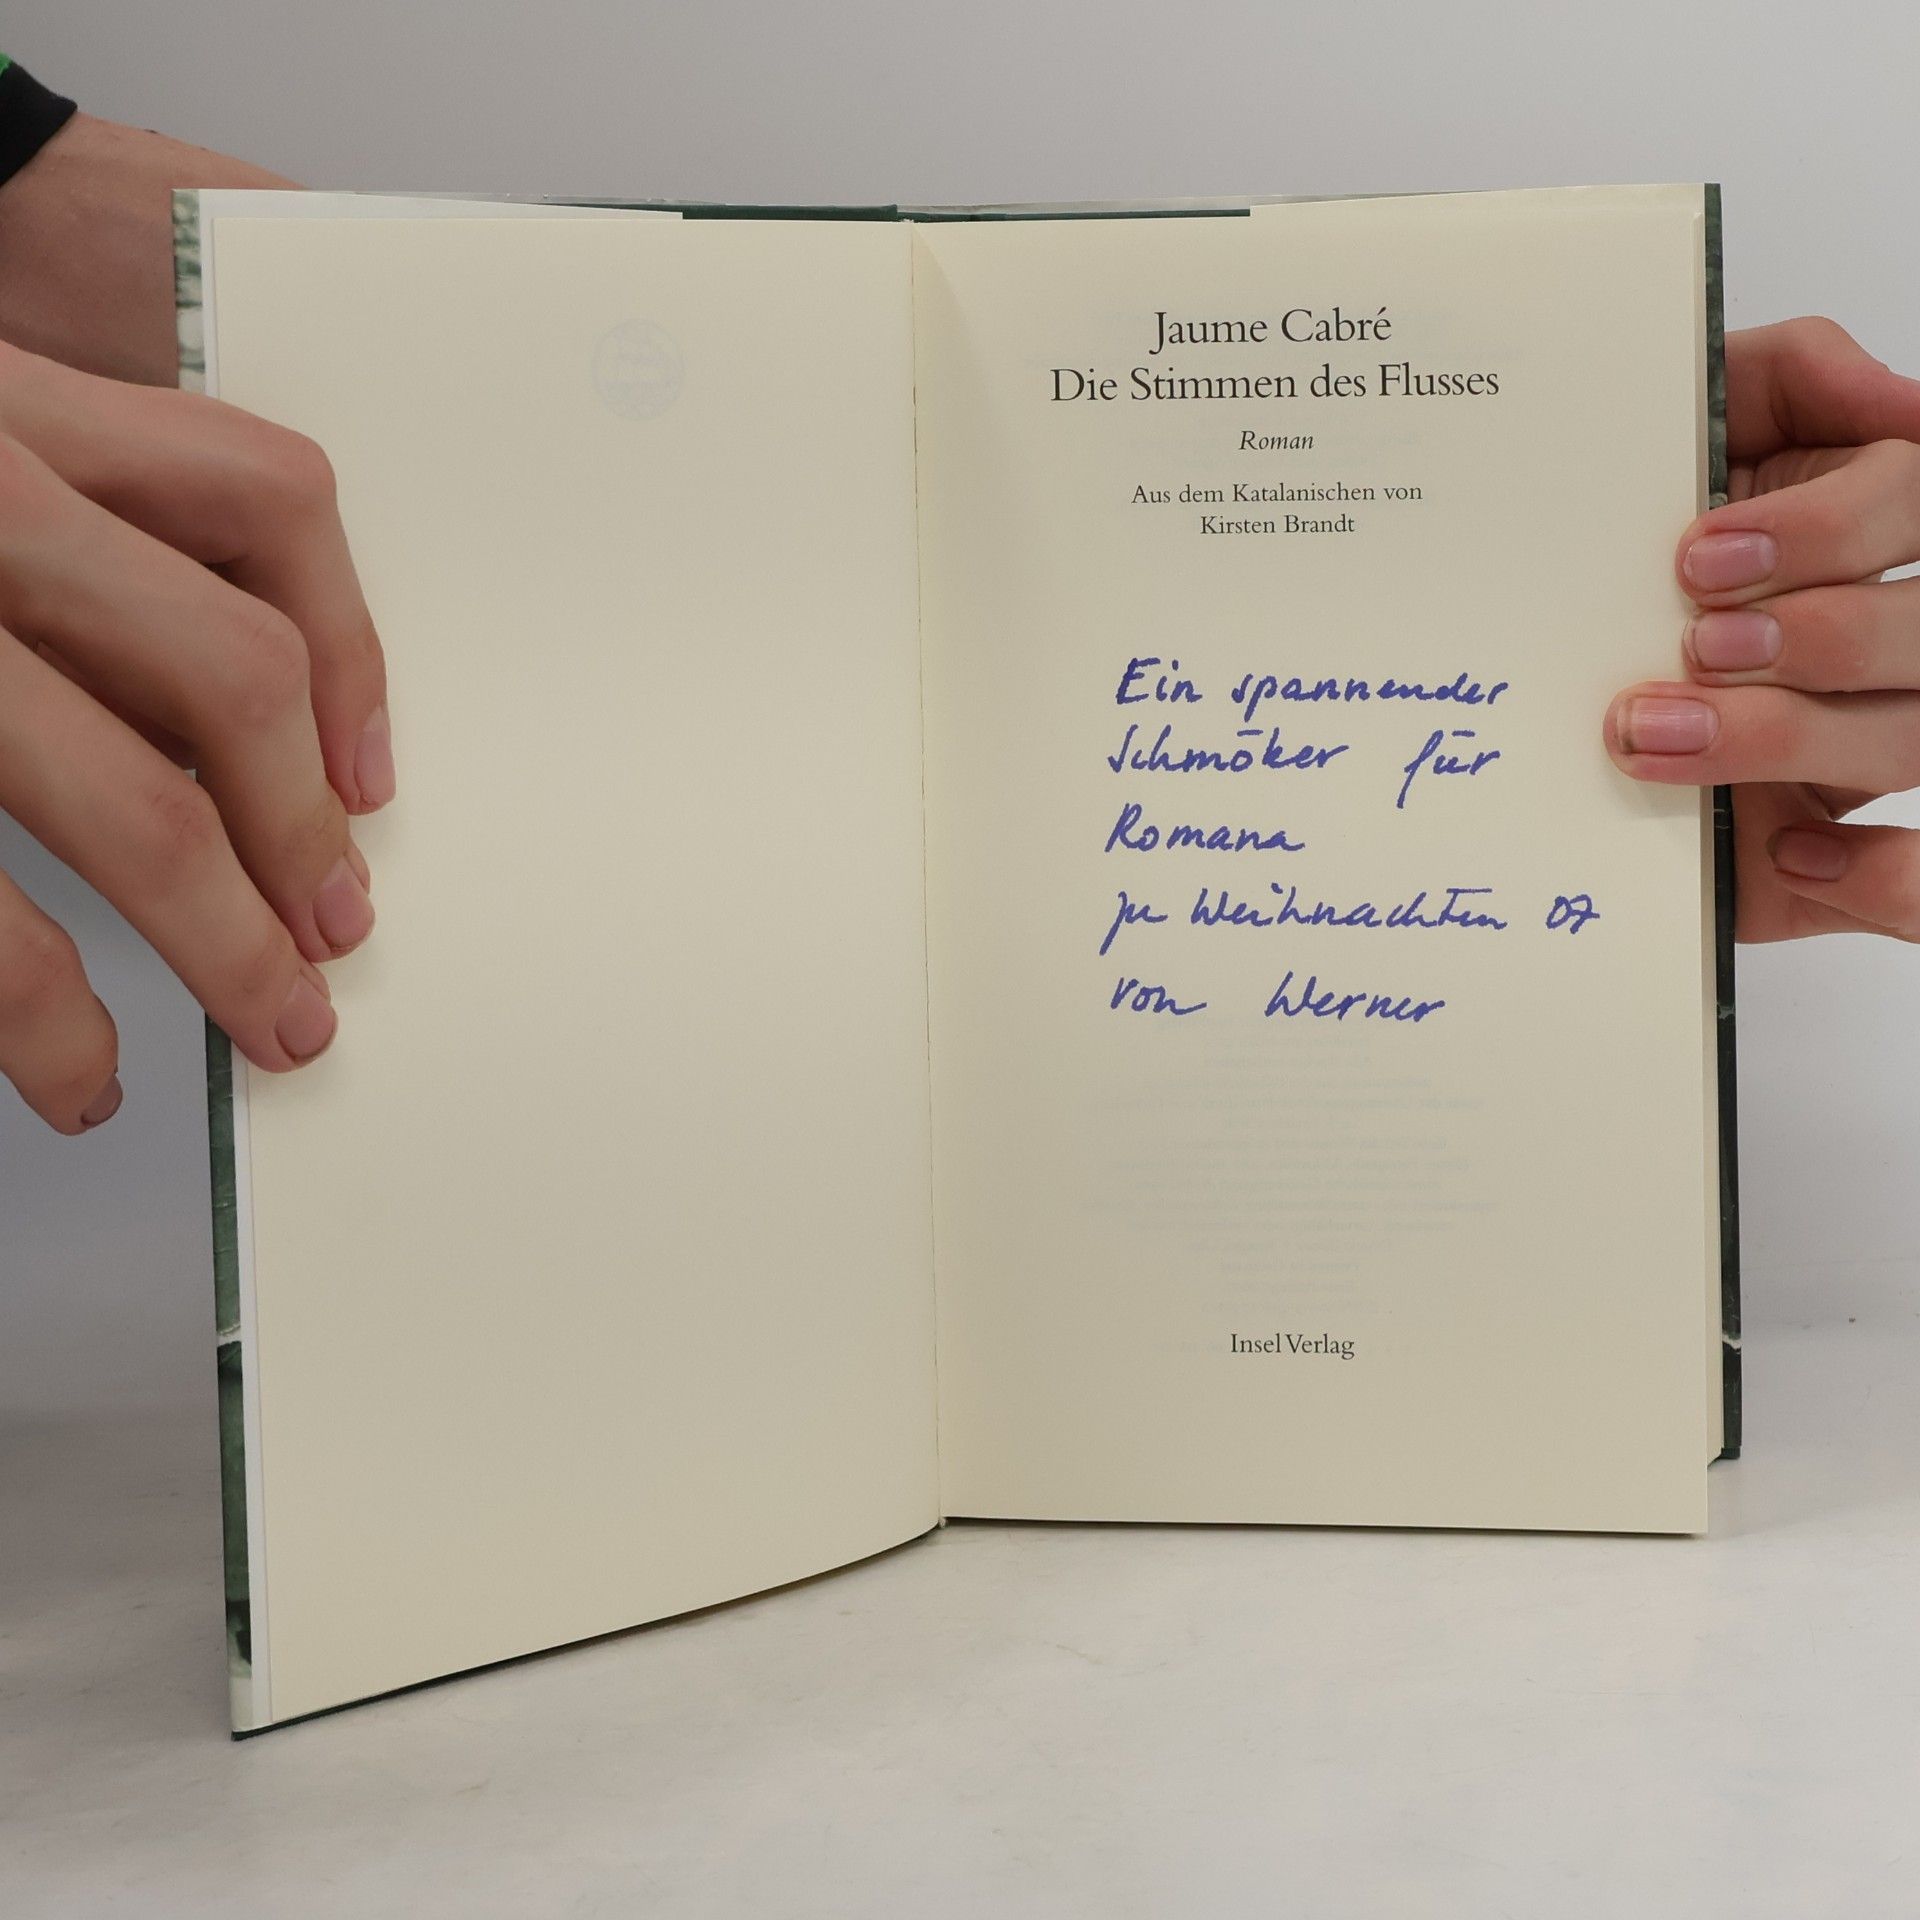 Jaume Cabré
Die Stimmen des Flusses
Roman
Aus dem Katalanischen von
Kirsten Brandt
Ein spannender
Schmöker für
Romana
zu Weihnachten 07
von Werner
Insel Verlag